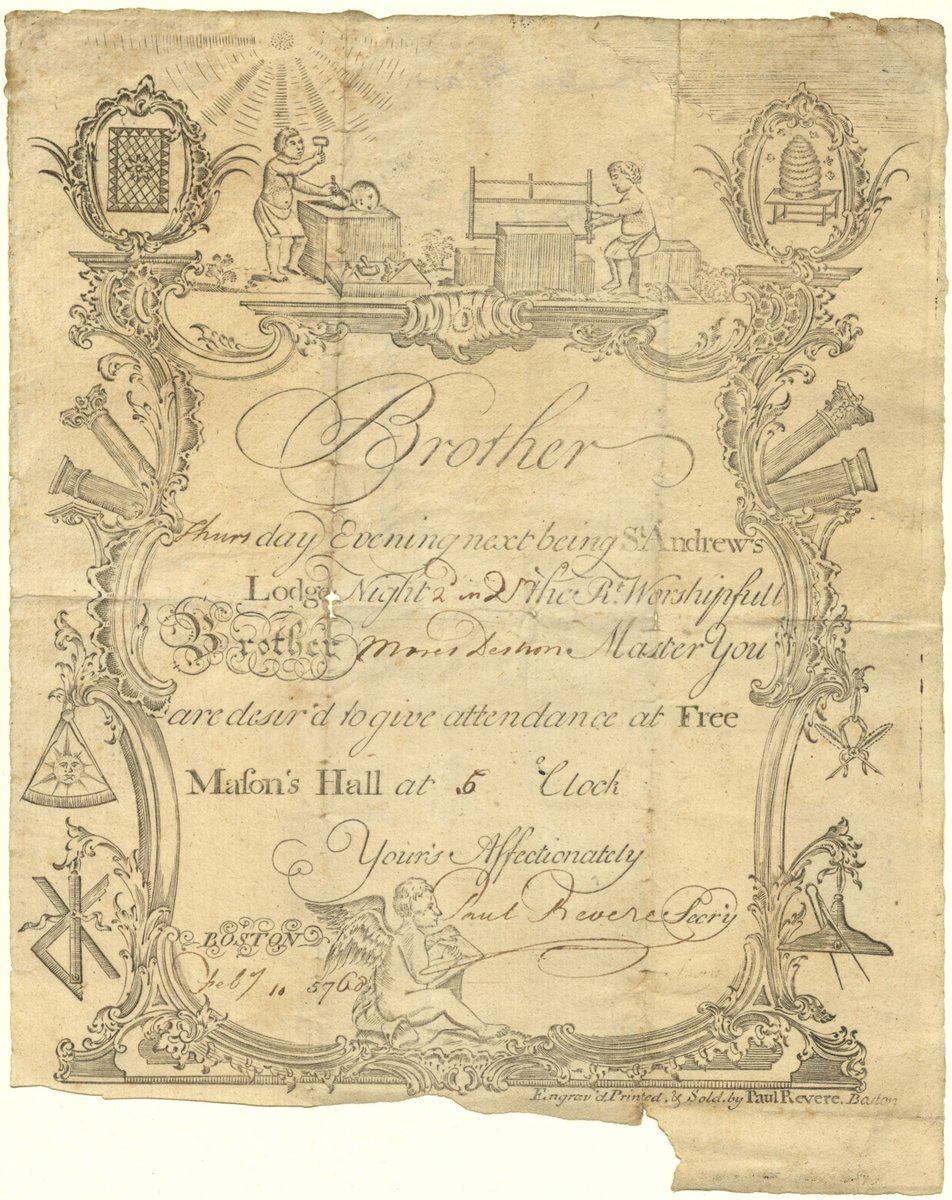 Brother
Thursday Evening next being St Andrew's
Lodge Night the Rt Worshipfull
Brother Moses Deshon Master You
are desir'd to give attendance at Free
Maſon's Hall at 5 oClock
Your's Affectionately
Paul Revere Secry
BOSTON
Feby 10 5768
Engrav'd, Printed, & Sold, by Paul Revere. Boston